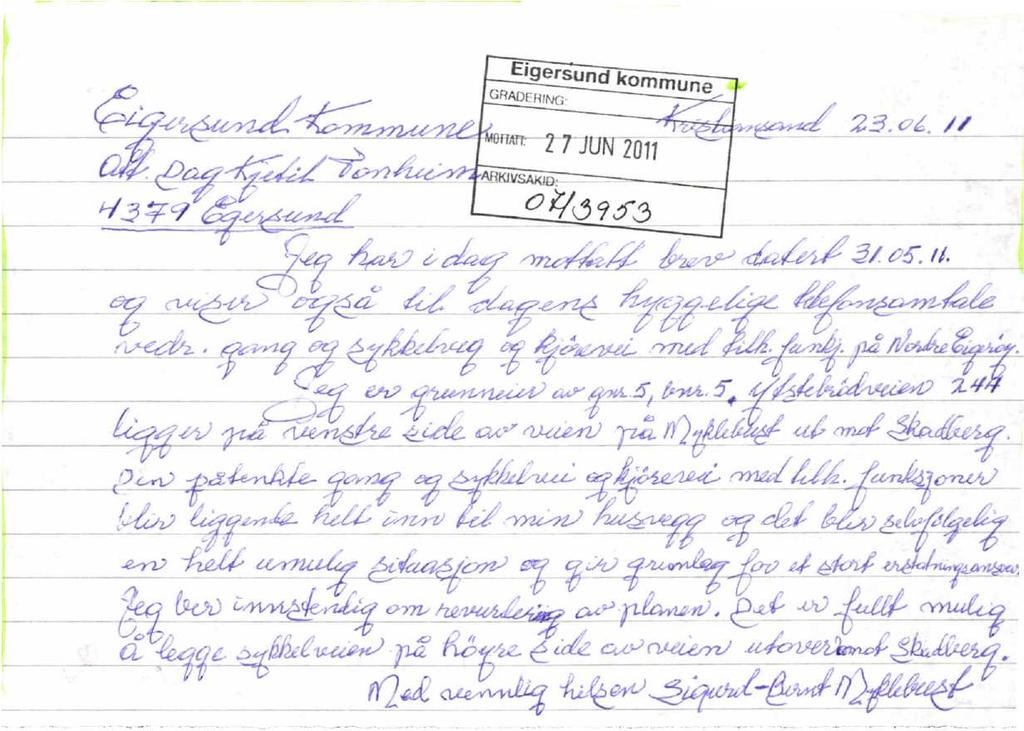 Eigersund kommune
GRADERING:
MOTTATT: 27 JUN 2011
ARKIVSAKID:
07/3953
Eigersund Kommune Kristiansand 23.06.11
Att. Dag Kjetil Tonheim
4379 Egersund
Jeg har i dag mottatt brev datert 31.05.11.
og viser også til dagens hyggelige telefonsamtale
vedr. gang og sykkelveg og kjörevei med tilh. funksj. på Nordre Eigeröy.
Jeg er grunneier av gnr. 5, bnr. 5. Ytstebrödveien 244
ligger på venstre side av veien på Myklebust ut mot Skadberg.
Den påtenkte gang og sykkelvei og kjörevei med tilh. funksjoner
blir liggende helt inn til min husvegg og det blir selvfölgelig
en helt umulig situasjon og gir grunnlag for et stort erstatningsansvar.
Jeg ber innstendig om revurdering av planen. Det er fullt mulig
å legge sykkelveien på höyre side av veien utover mot Skadberg.
Med vennlig hilsen Sigurd-Bernt Myklebust